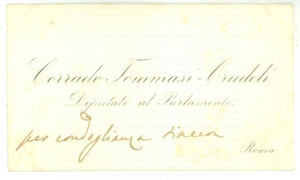 Corrado Tommasi-Crudeli
Deputato al Parlamento.
per condoglianza sincera
Roma